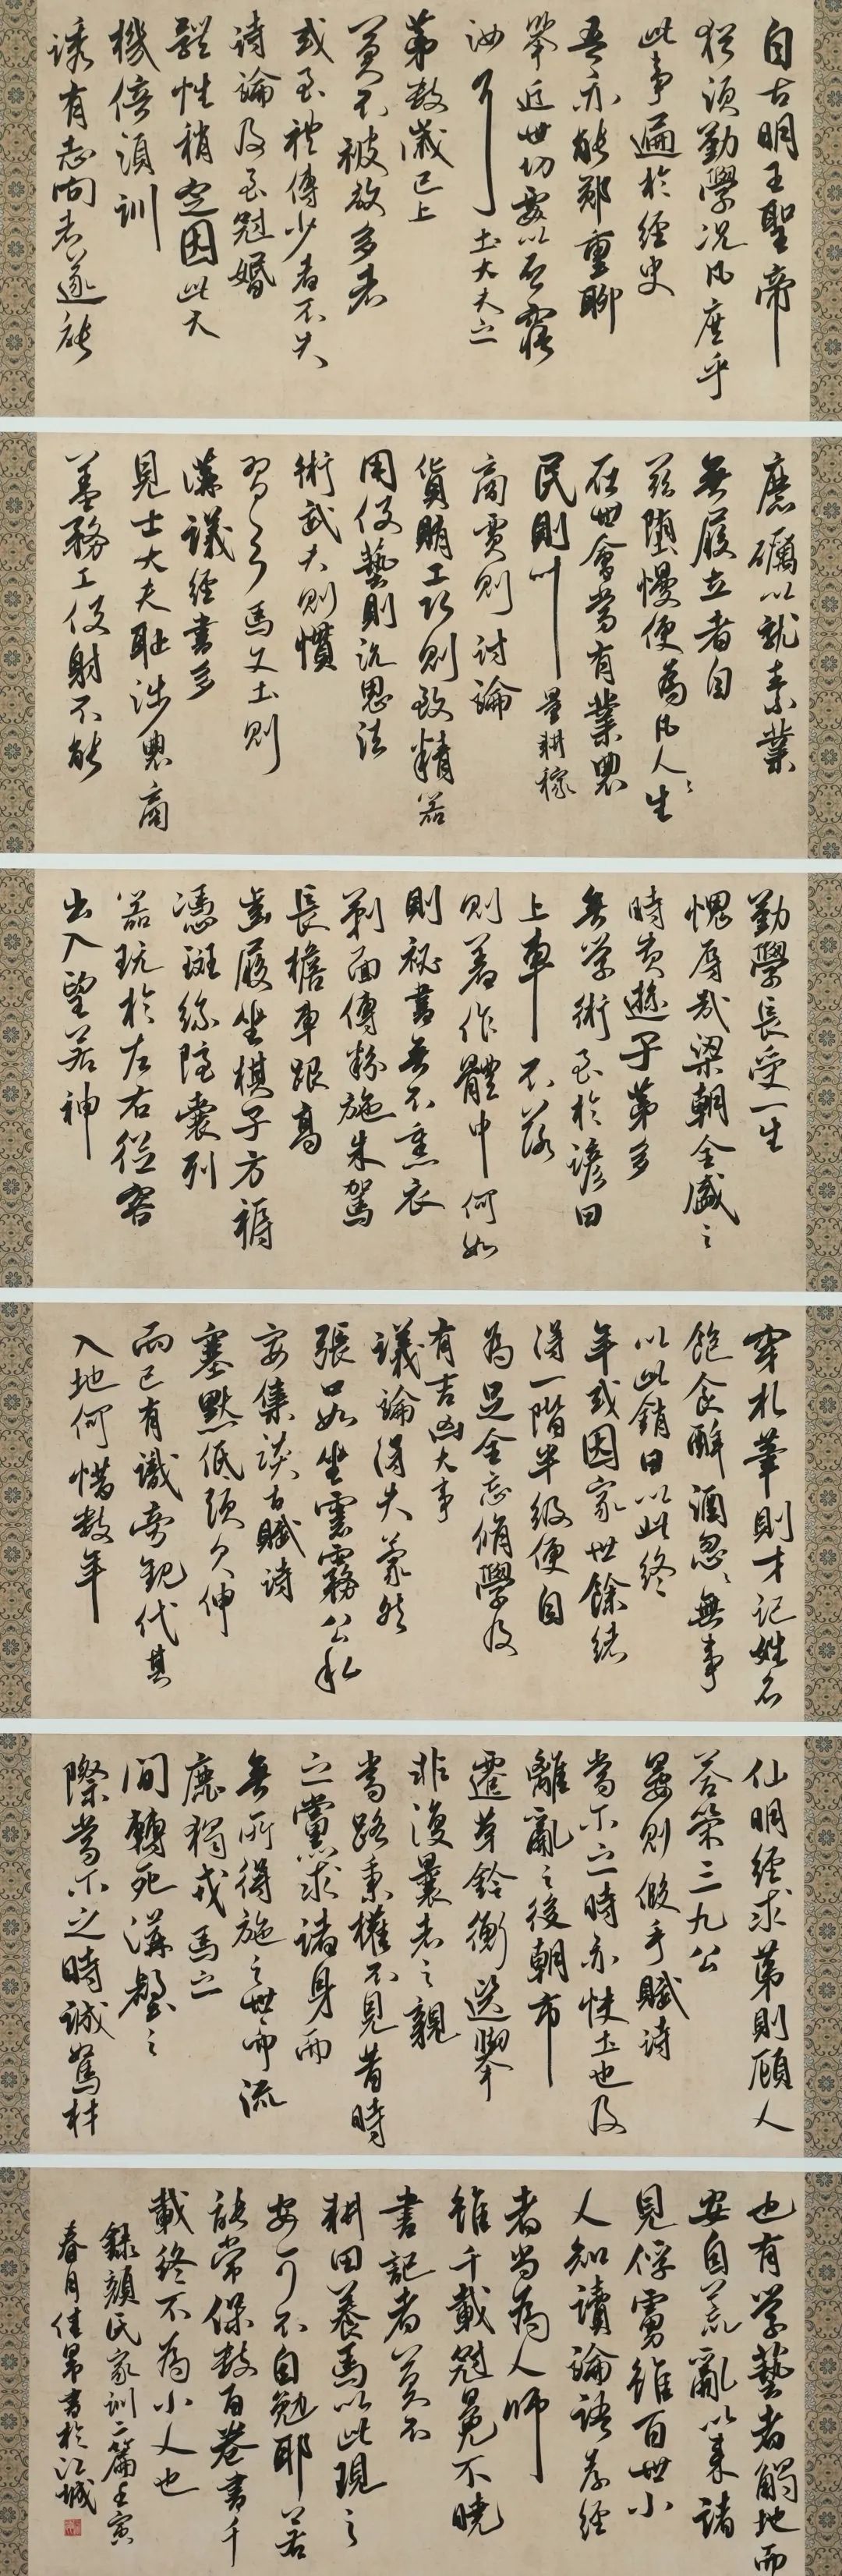 自古明王聖帝
猶須勤學況凡庶乎
此事遍於經史
吾亦能鄭重聊
舉近世切要以啓寤
汝耳士大夫之
弟數歲已上
莫不被教多者
或至禮傳少者不失
詩論及至冠婚
體性稍定因此天
機倍須訓
誘有志尚者遂能
磨礪以就素業
無履立者自
茲墮慢便為凡人人生
在世會當有業農
民則計量耕稼
商賈則討論
貨賄工巧則致精器
用伎藝則沉思法
術武夫則慣
習弓馬文士則
講議經書多
見士大夫恥涉農商
羞務工伎射不能
勤學長受一生
愧辱哉梁朝全盛之
時貴遊子弟多
無學術至於諺曰
上車不落
則著作體中何如
則秘書無不熏衣
剃面傅粉施朱駕
長檐車跟高
齒屐坐棋子方褥
憑斑絲隱囊列
器玩於左右從容
出入望若神
穿札筆則才記姓名
飽食醉酒忽忽無事
以此銷日以此終
年或因家世餘緒
得一階半級便自
為足全忘脩學及
有吉凶大事
議論得失蒙然
張口如坐雲霧公私
宴集談古賦詩
塞默低頭欠伸
而已有識旁觀代其
入地何惜數年
仙明經求第則顧人
答策三九公
宴則假手賦詩
當尔之時亦快士也及
離亂之後朝市
遷革銓衡選舉
非復曩者之親
當路秉權不見昔時
之黨求諸身而
無所得施之世而
流
鹿獨戎馬之
間轉死溝壑之
際當尔之時誠駑材
也有学藝者觸地而
安自荒亂以來諸
見俘虜雖百世小
人知讀論語孝經
者尚為人師
雖千載冠冕不曉
書記者莫不
耕田養馬以此現之
安可不自勉耶若
能常保數百卷書千
載終不為小人也
錄顏氏家訓二篇壬寅
春月佳昂書於江城